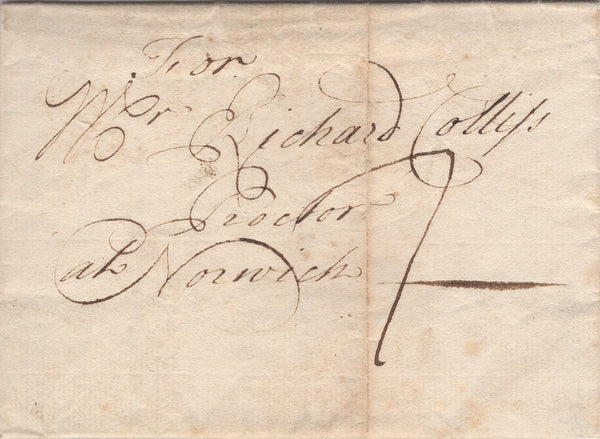 For
Mr Richard Colliss
Proctor
at Norwich
7